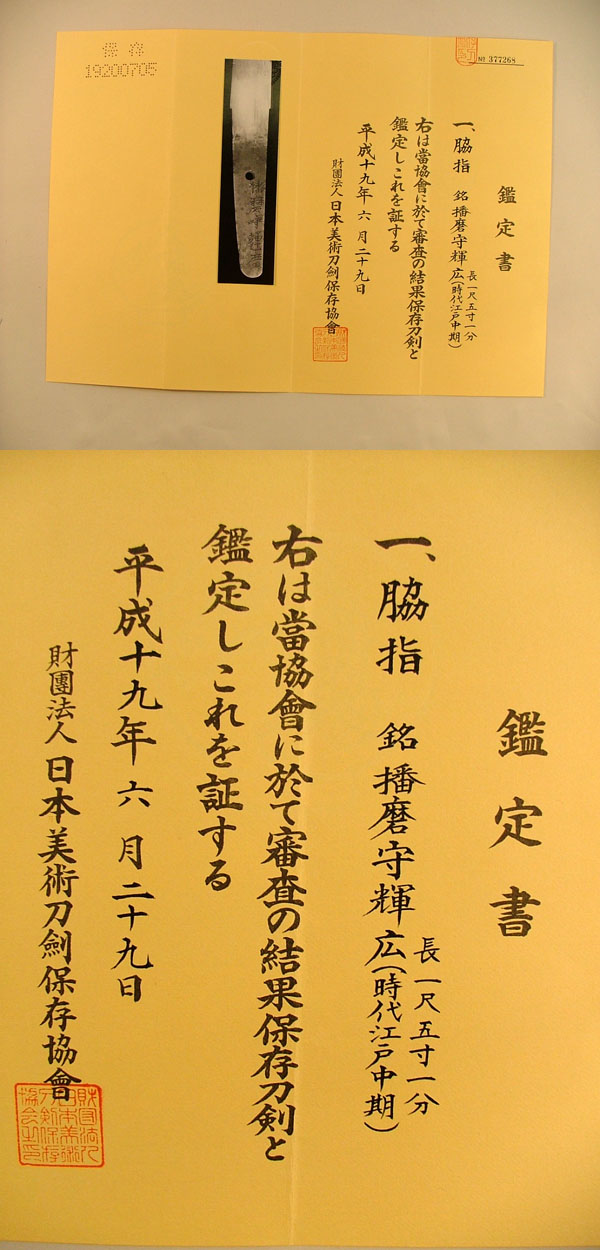 保存
19200705
№ 377268
鑑定書
一、脇指 銘 播磨守輝広(時代江戸中期)
長一尺五寸一分
右は當協會に於て審査の結果保存刀剣と
鑑定しこれを証する
平成十九年六月二十九日
財團法人日本美術刀劍保存協會
鑑定書
一、脇指 銘 播磨守輝広(時代江戸中期)
長一尺五寸一分
右は當協會に於て審査の結果保存刀剣と
鑑定しこれを証する
平成十九年六月二十九日
財團法人日本美術刀劍保存協會
財団法人
日本美術
刀剣保存
協会之印